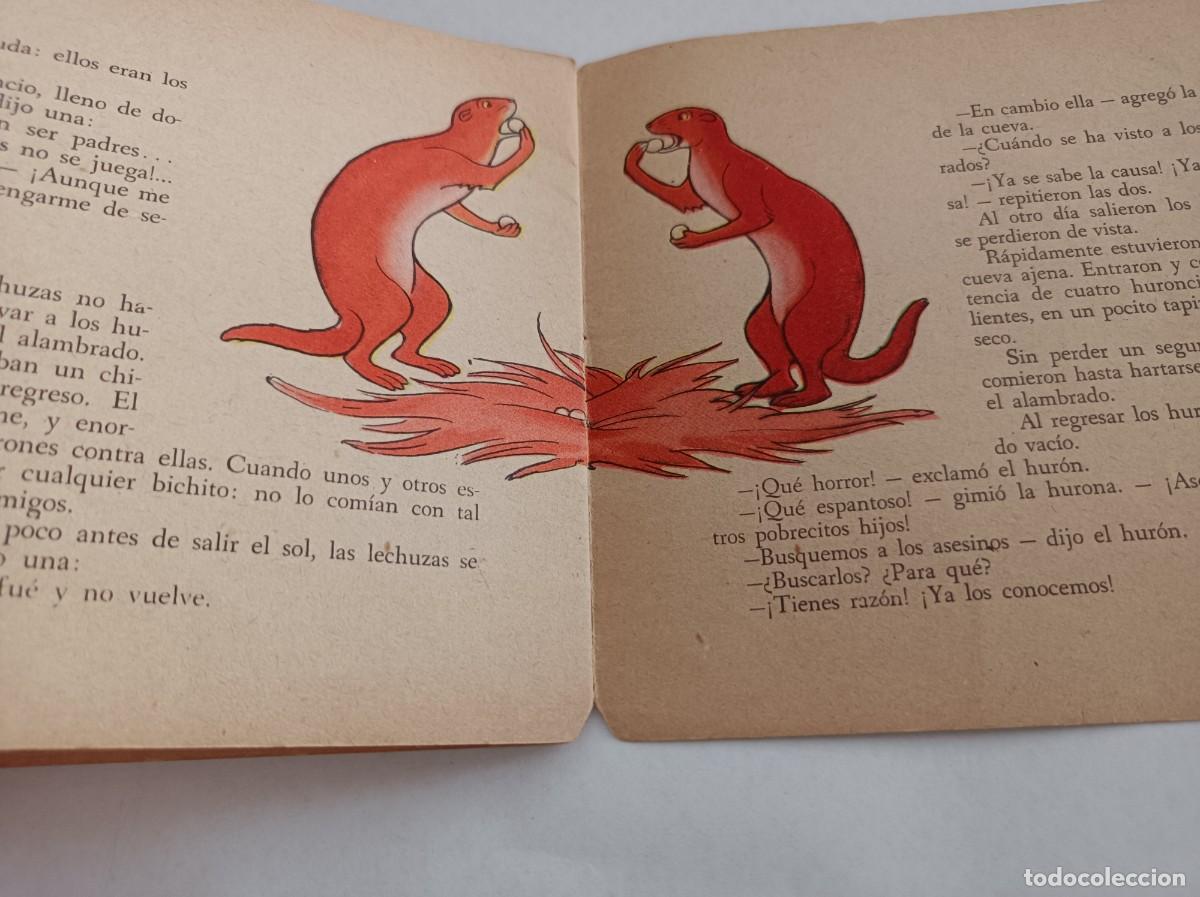 uda: ellos eran los
ncio, lleno de do-
dijo una:
n ser padres...
s no se juega!...
— ¡Aunque me
engarme de se-
huzas no ha-
var a los hu-
l alambrado.
ban un chi-
regreso. El
ne, y enor-
rones contra ellas. Cuando unos y otros es-
r cualquier bichito: no lo comían con tal
migos.
poco antes de salir el sol, las lechuzas se
o una:
fué y no vuelve.
—En cambio ella — agregó la
de la cueva.
—¿Cuándo se ha visto a los
rados?
—¡Ya se sabe la causa! ¡Ya
sa! — repitieron las dos.
Al otro día salieron los
se perdieron de vista.
Rápidamente estuvieron
cueva ajena. Entraron y c
tencia de cuatro huronci
lientes, en un pocito tapi
seco.
Sin perder un segun
comieron hasta hartarse
el alambrado.
Al regresar los hur
do vacío.
—¡Qué horror! — exclamó el hurón.
—¡Qué espantoso! — gimió la hurona. — ¡Ase
tros pobrecitos hijos!
—Busquemos a los asesinos — dijo el hurón.
—¿Buscarlos? ¿Para qué?
—¡Tienes razón! ¡Ya los conocemos!
todocoleccion